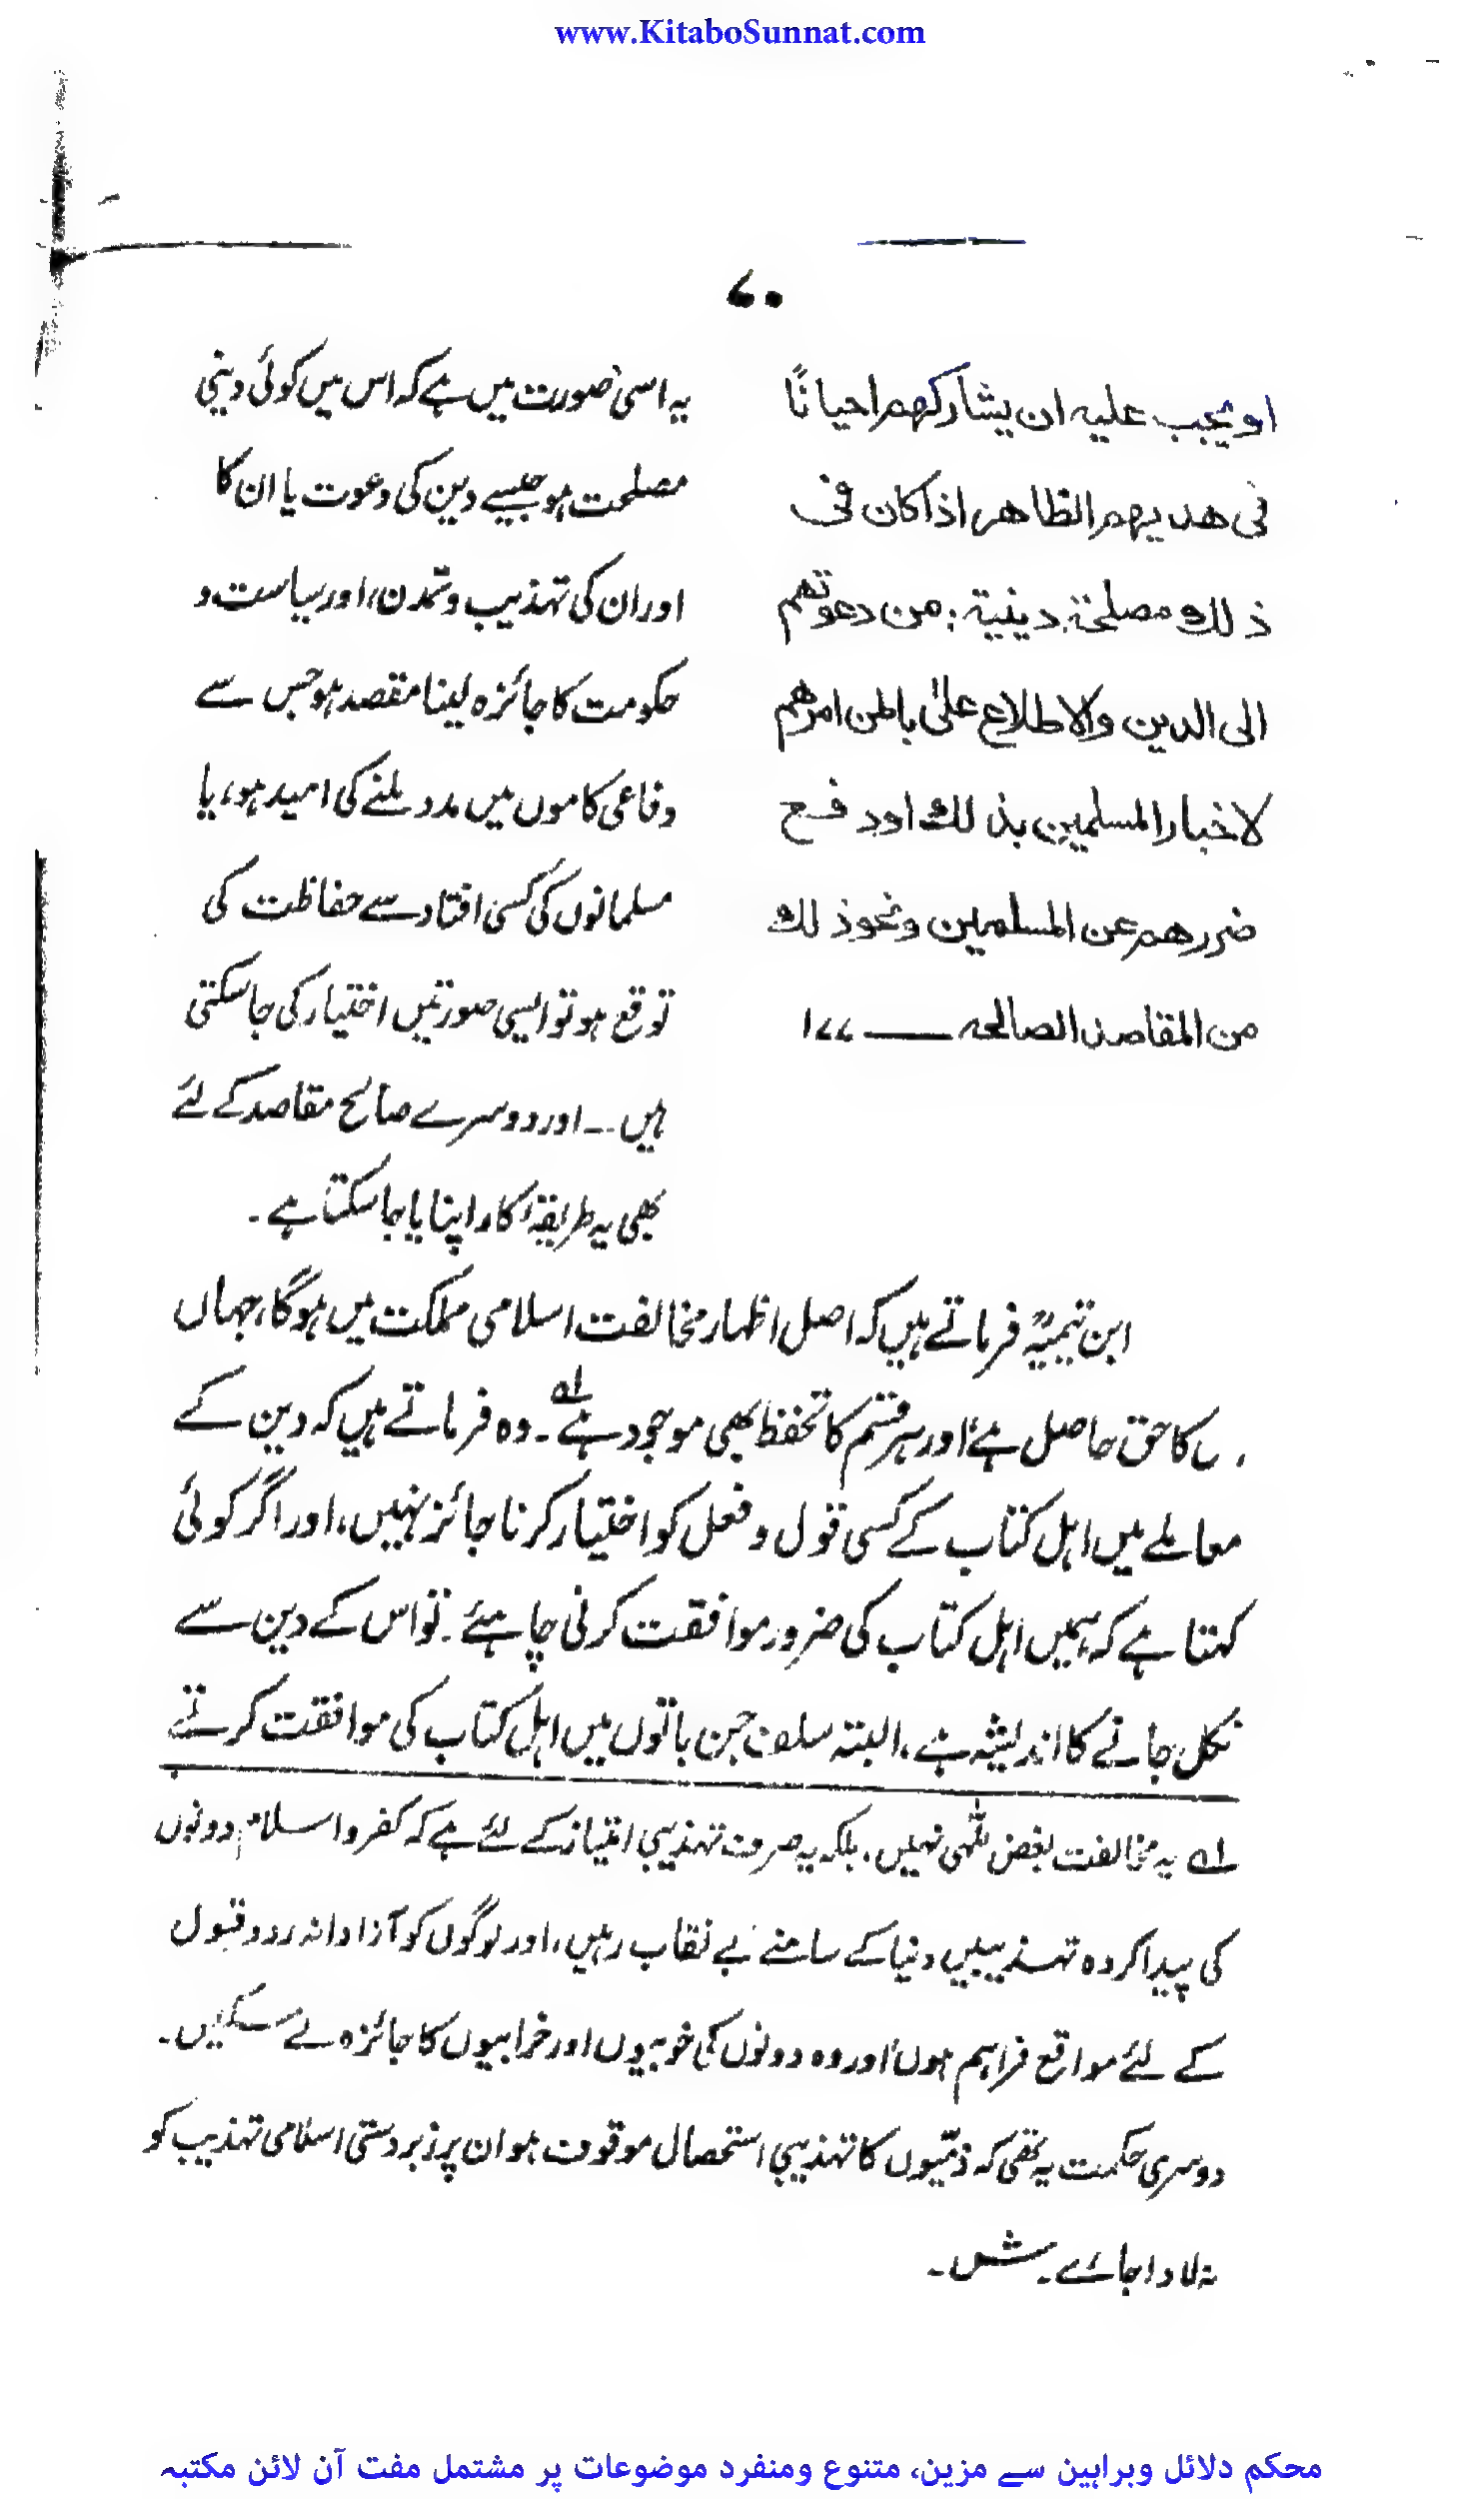 www.KitaboSunnat.com
۷۰
او یجب علیہ ان یشارکھم احیانًا
فی ھدیھم الظاھر اذا کان فی
ذلك مصلحۃ دینیۃ: من دعوتھم
الی الدین والاطلاع علیٰ باطن امرھم
لاخبار المسلمین بذلك اودفع
ضررھم عن المسلمین ونحو ذلك
من المقاصد الصالحہ ــــــ ۱۷۷
یہ اسی صورت میں ہے کہ اس میں کوئی دینی
مصلحت ہو جیسے دین کی دعوت یا ان کا
اوران کی تہذیب و تمدن، اور سیاست و
حکومت کا جائزہ لینا مقصد ہو جس سے
دفاعی کاموں میں مدد ملنے کی امید ہو، یا
مسلمانوں کی کسی افتاد سے حفاظت کی
توقع ہو تو ایسی صورتیں اختیار کی جاسکتی
ہیں ــ اور دوسرے صالح مقاصد کے لئے
بھی یہ طریقۂ کار اپنایا جاسکتا ہے۔
ابن تیمیہؒ فرماتے ہیں کہ اصل اظہار مخالفت اسلامی مملکت میں ہوگا، جہاں
کا حق حاصل ہے، اور ہر قسم کا تحفظ بھی موجود ہے لہ۔ وہ فرماتے ہیں کہ دین کے
معاملے میں اہل کتاب کے کسی قول و فعل کو اختیار کرنا جائز نہیں، اور اگر کوئی
کہتا ہے کہ ہمیں اہل کتاب کی ضرور موافقت کرنی چاہئے۔ تو اس کے دین سے
نکل جانے کا اندیشہ ہے، البتہ سلف جن باتوں میں اہل کتاب کی موافقت کرتے
لہ یہ مخالفت بغض للّٰہی نہیں، بلکہ یہ صرف تہذیبی امتیاز کے لئے ہے کہ کفر و اسلام دونوں
کی پیدا کردہ تہذیبیں دنیا کے سامنے بے نقاب رہیں، اور لوگوں کو آزادانہ ردوقبول
کے لئے مواقع فراہم ہوں، اور وہ دونوں کی خوبیوں اور خرابیوں کا جائزہ لے سکیں۔
دوسری حکمت یہ تھی کہ ذمیّوں کا تہذیبی استحصال موقوف ہو ان پر زبردستی اسلامی تہذیب کو
نہ لادا جائے۔ ش۔
محکم دلائل وبراہین سے مزین، متنوع ومنفرد موضوعات پر مشتمل مفت آن لائن مکتبہ